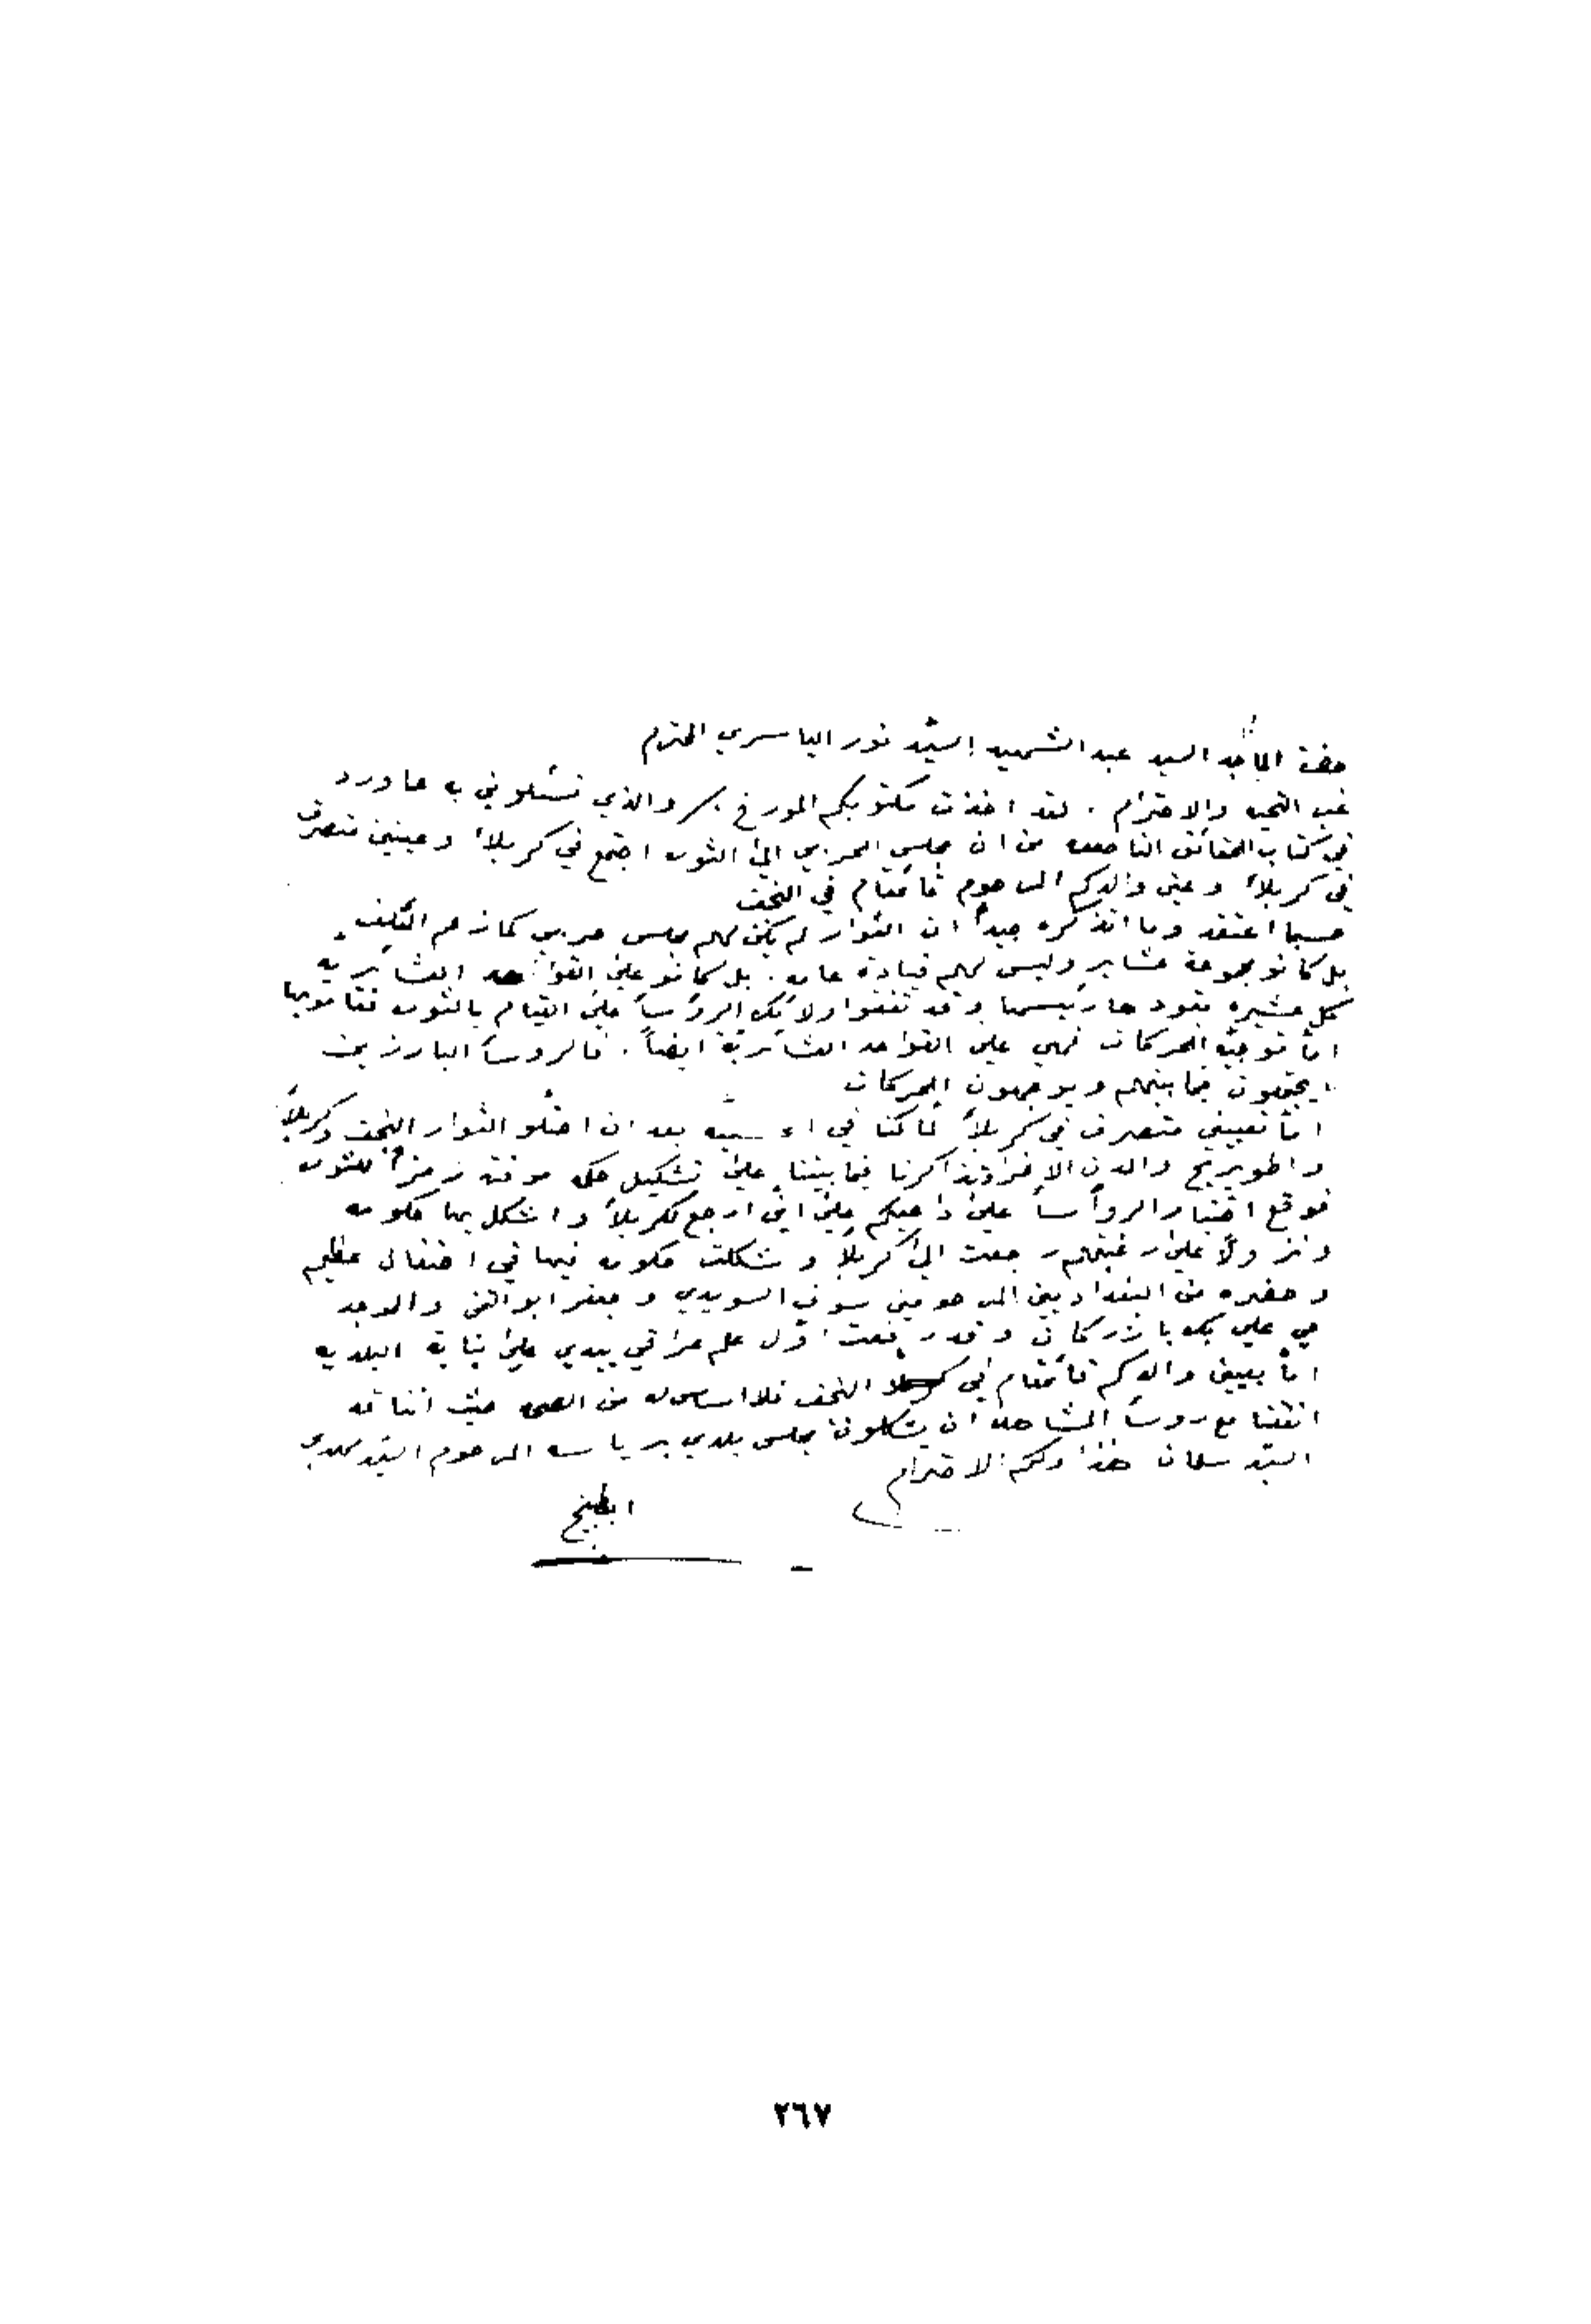 حضرة الماجد السيد عبد الشهيد السيد نور الياسري المحترم
غب التحيه والاحترام . لقد اخذت مكتوبكم المورخ والذي تسئلوني به عا ورد
في كتاب الحقائق الناصعه من ان مجلس الحربي الى الثوره اجتمع في كربلاء وعينني متصرف
في كربلاء وعين والدكم المرحوم قائمقام في النجف
حسبما اعتقد وما اتذكره جيداً ان الثوار لم يكن لهم مجلس حربي كما زعم المؤلف
بل كانو مجموعة عشاير وليس لهم قيادة عامه . بل كانو على القواعد العشائريه
كل عشيره يقودها رئيسها وقد تفقوا ولائك الرؤساء على القيام بالثوره فقاموبها
اما توجيه الحركات فهي على القواعد العشائرية ايضاً . فالروساء البارزين
يجتمعون فيما بينهم ويوجهون الحركات
اما تعييني متصرف في كربلاء لما كنا في بعد ان احتلو الثوار النجف وكربلاء
واطويريج والمدن الاخرا تذاكرنا فيما بيننا على تشكيل حكومه موقته رمزاً للثوره
فوقع اختيار الروأساء على داعيكم على انى ارجع لكربلاء واشكل بها حكومه
ونزولاً على رغبتهم رجعت الى كربلاء وشكلت حكومه فيها في احتفال عظيم
وحضره من البغداديين المرحومين يوسف السويدي وجعفر ابو التمن والموجد
حي علي بك بازركان وقد رفعت اول علم عراقي بيدي على بناية البلديه
اما تعيين والدكم قائمقام في النجف فلا اساس له من الصحه حيث اننا قد
اتفقنا مع روساء المشاهده ان يشكلون مجلس بلدي برياسه المرحوم السيد مهدي
السيد سلمان هذا ولكم الاحترام
ابطبيخ
٢٦٧